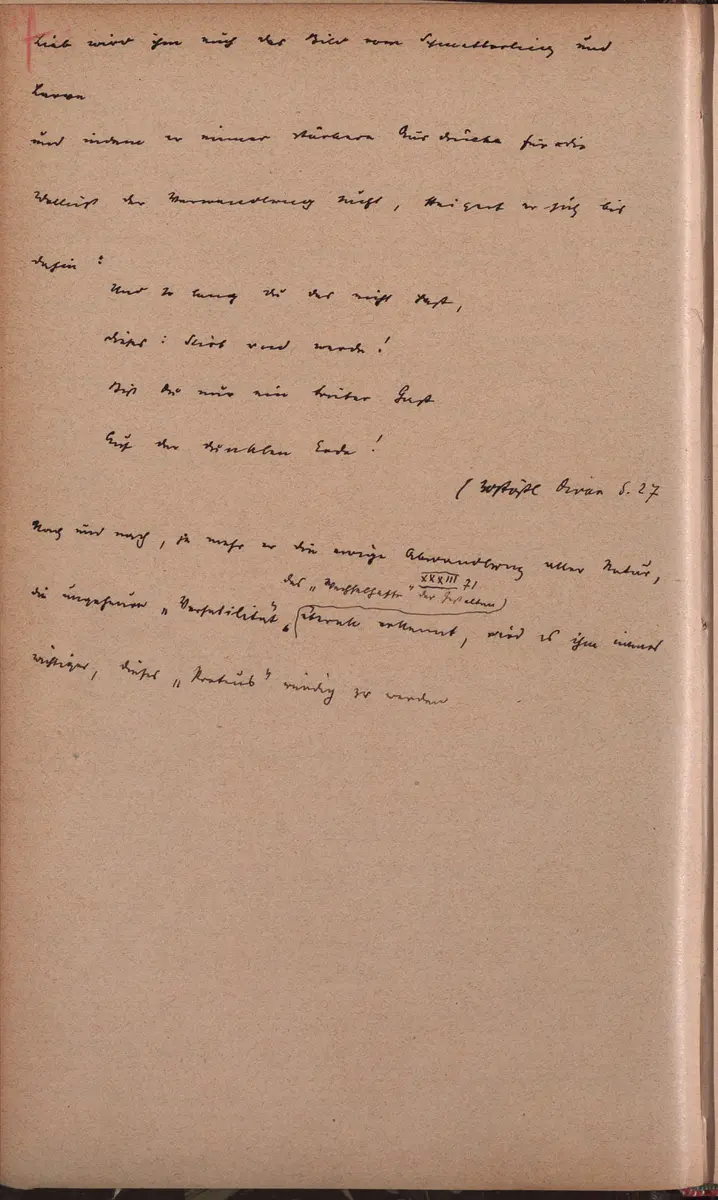 Lieb wird ihm auch das Bild vom Schmetterling und
Larve
und indem er immer stärkere Ausdrücke für die
Wollust der Verwandlung sucht, steigert er sich bis
dahin :
Und so lang du das nicht hast,
dieses : Stirb und werde !
Bist du nur ein trüber Gast
Auf der dunklen Erde !
Divan S. 27
Nach und nach, je mehr er die ewige Abwandlung aller Natur,
XXXIII 71
das „Wechselhafte" der Gestalten)
die ungeheure „Versatilität", überall erkennt, wird es ihm immer
wichtiger, dieses „Proteus" würdig zu werden